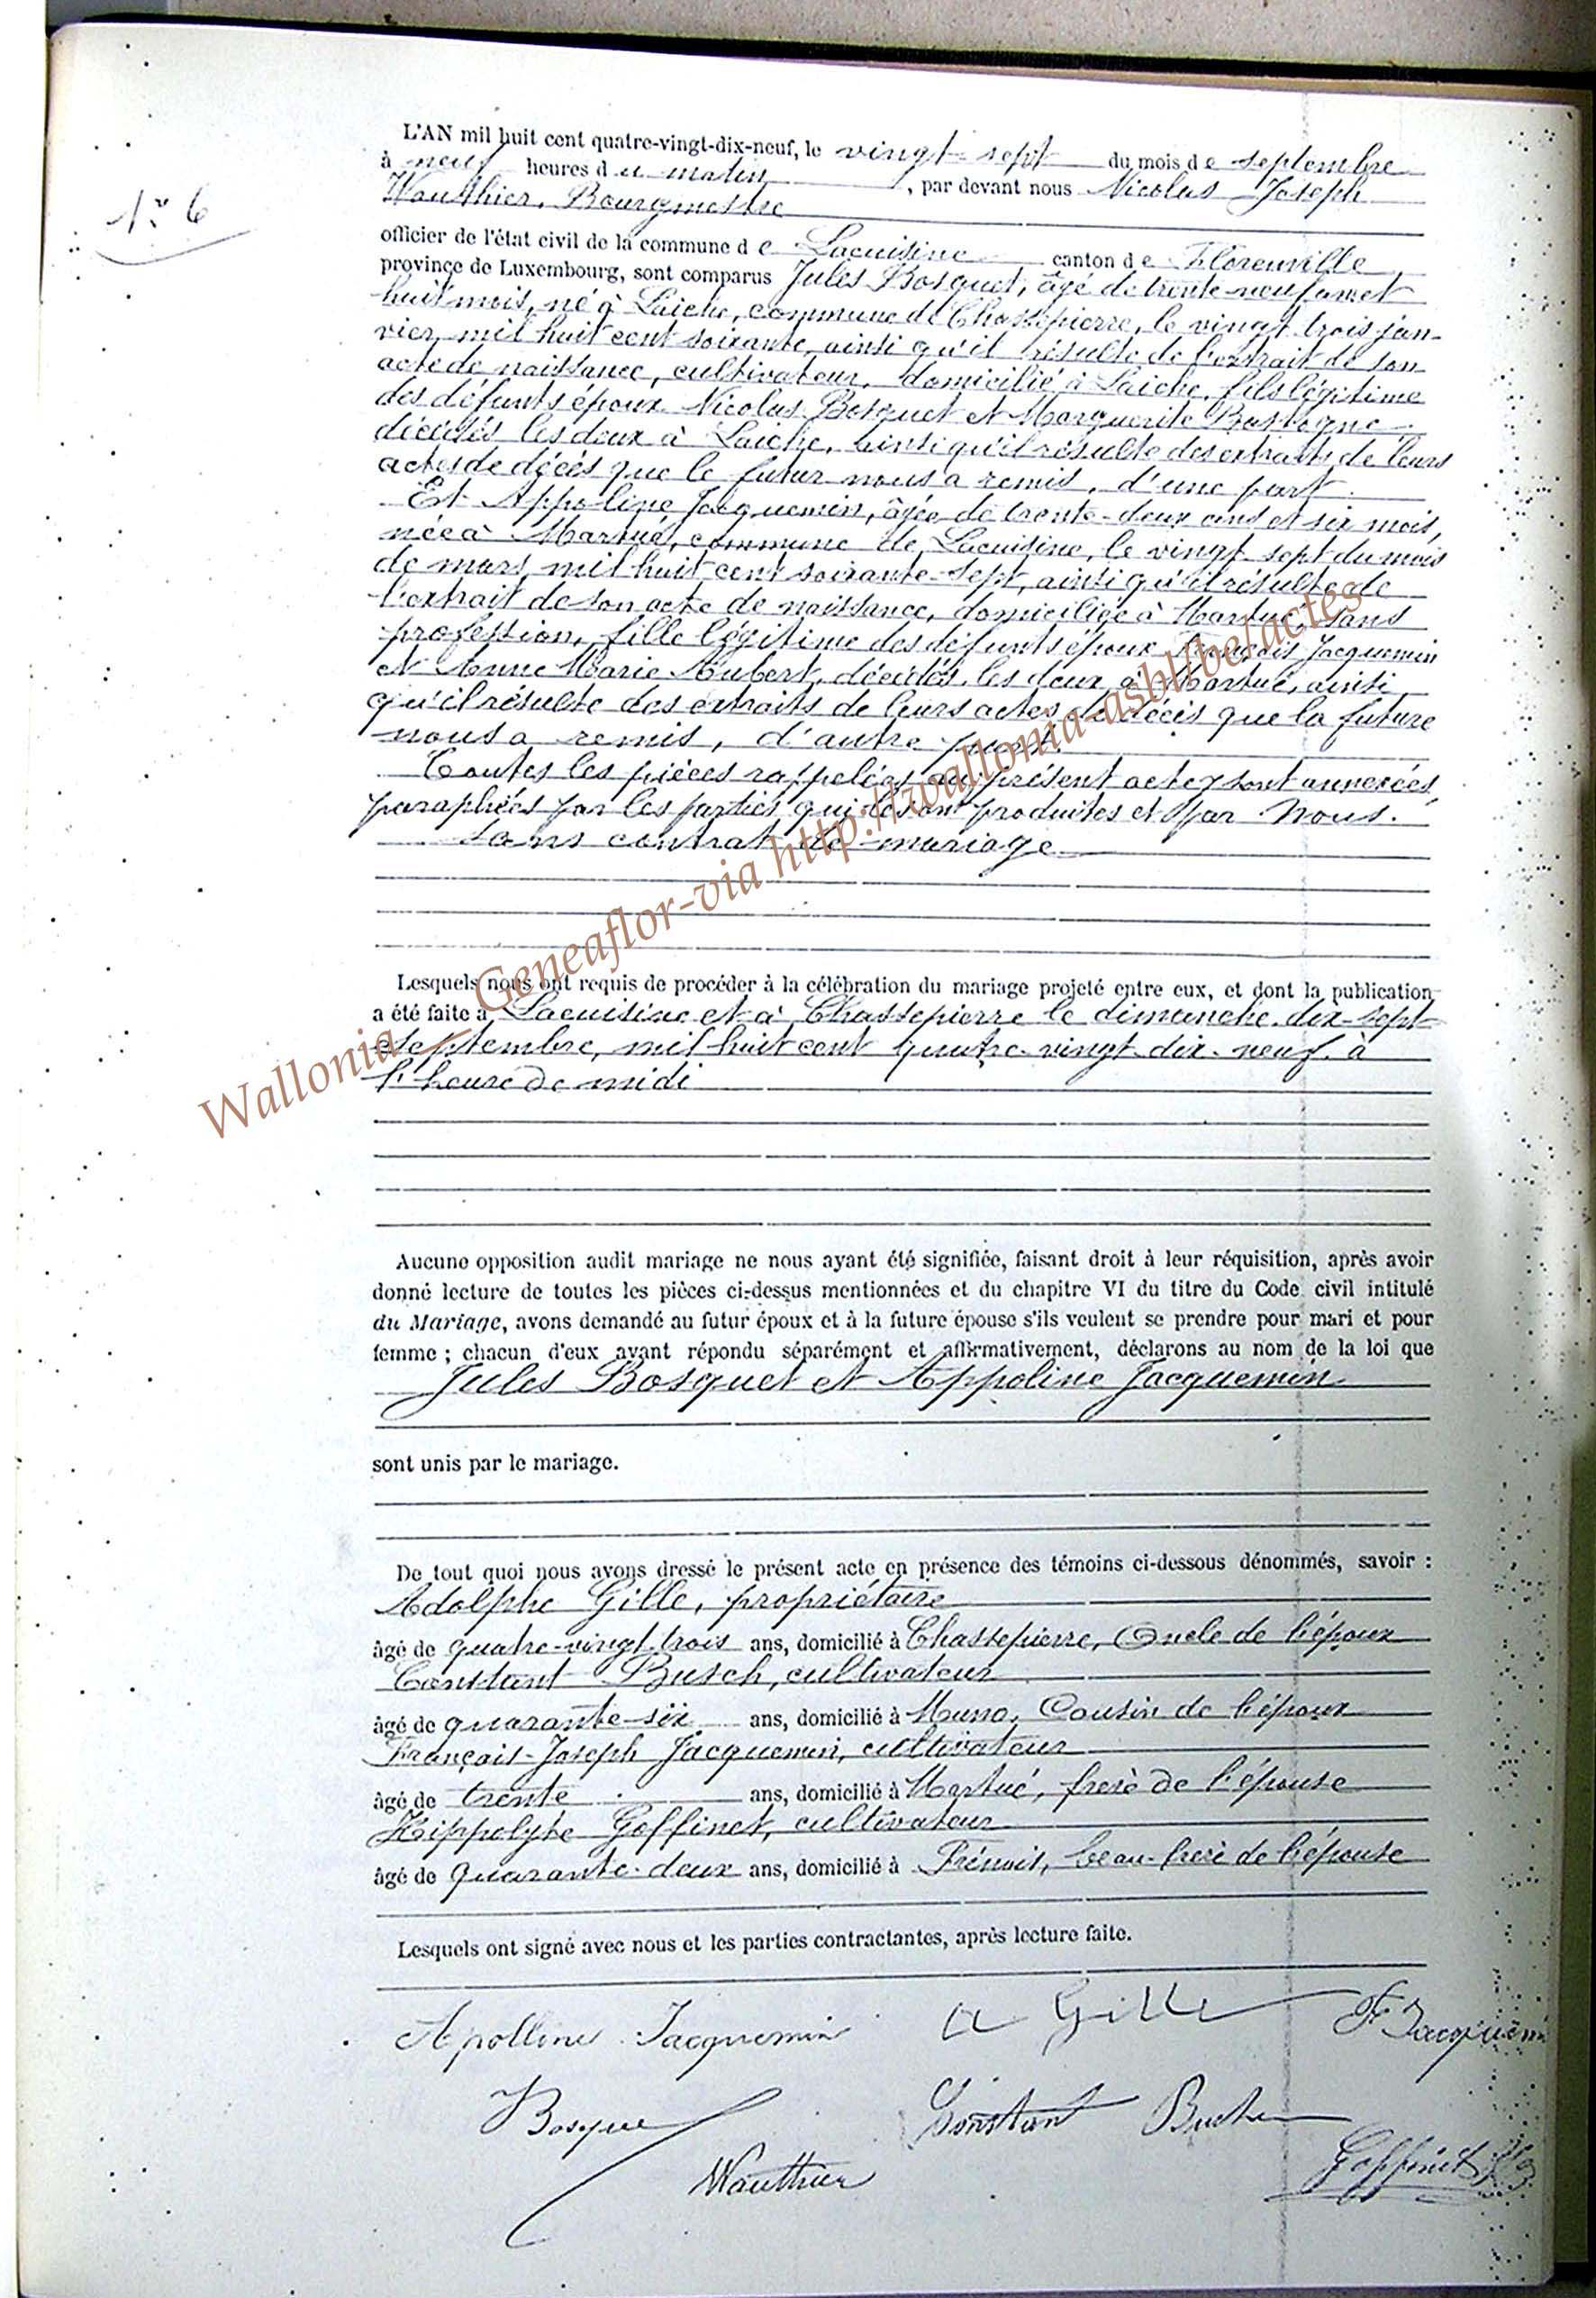 N° 6
L'AN mil huit cent quatre-vingt-dix-neuf, le vingt-sept du mois de septembre
à neuf heures du matin, par devant nous Nicolas Joseph
Wauthier, Bourgmestre
officier de l'état civil de la commune de Lacuisine canton de Florenville
province de Luxembourg, sont comparus Jules Bosquet, âgé de trente-neuf ans et
huit mois, né à Laiche, commune de Chassepierre, le vingt trois jan-
vier mil huit cent soixante, ainsi qu'il résulte de l'extrait de son
acte de naissance, cultivateur, domicilié à Laiche, fils légitime
des défunts époux Nicolas Bosquet et Marguerite Bastogne
décédés les deux à Laiche, ainsi qu'il résulte des extraits de leurs
actes de décès que le futur nous a remis, d'une part.
Et Appoline Jacquemin, âgée de trente-deux ans et six mois,
née à Martué, commune de Lacuisine, le vingt-sept du mois
de mars mil huit cent soixante-sept, ainsi qu'il résulte de
l'extrait de son acte de naissance, domiciliée à Martué, sans
profession, fille légitime des défunts époux François Jacquemin
et Anne Marie Aubert, décédés les deux à Martué, ainsi
qu'il résulte des extraits de leurs actes de décès que la future
nous a remis, d'autre part.
Toutes les pièces rappelées au présent acte y sont annexées,
paraphées par les parties qui les ont produites et par nous.
Sans contrat de mariage
Lesquels nous ont requis de procéder à la célébration du mariage projeté entre eux, et dont la publication
a été faite à Lacuisine et à Chassepierre le dimanche dix-sept
septembre, mil huit cent quatre-vingt-dix-neuf à
l'heure de midi
Wallonia - Geneaflor-via http://wallonia-asbl/be/actes
Aucune opposition audit mariage ne nous ayant été signifiée, faisant droit à leur réquisition, après avoir
donné lecture de toutes les pièces ci-dessus mentionnées et du chapitre VI du titre du Code civil intitulé
du Mariage, avons demandé au futur époux et à la future épouse s'ils veulent se prendre pour mari et pour
femme ; chacun d'eux ayant répondu séparément et affirmativement, déclarons au nom de la loi que
Jules Bosquet et Appoline Jacquemin
sont unis par le mariage.
De tout quoi nous avons dressé le présent acte en présence des témoins ci-dessous dénommés, savoir :
Adolphe Gille, propriétaire
âgé de quatre-vingt-trois ans, domicilié à Chassepierre, Oncle de l'époux
Constant Busch, cultivateur
âgé de quarante-six ans, domicilié à Muno, Cousin de l'époux
François-Joseph Jacquemin, cultivateur
âgé de trente ans, domicilié à Martué, frère de l'épouse
Hippolyte Goffinet, cultivateur
âgé de quarante-deux ans, domicilié à Frénois, beau-frère de l'épouse
Lesquels ont signé avec nous et les parties contractantes, après lecture faite.
Apolline Jacquemin A Gille F Jacquemin
Bosquet Constant
Wauthier Goffinet